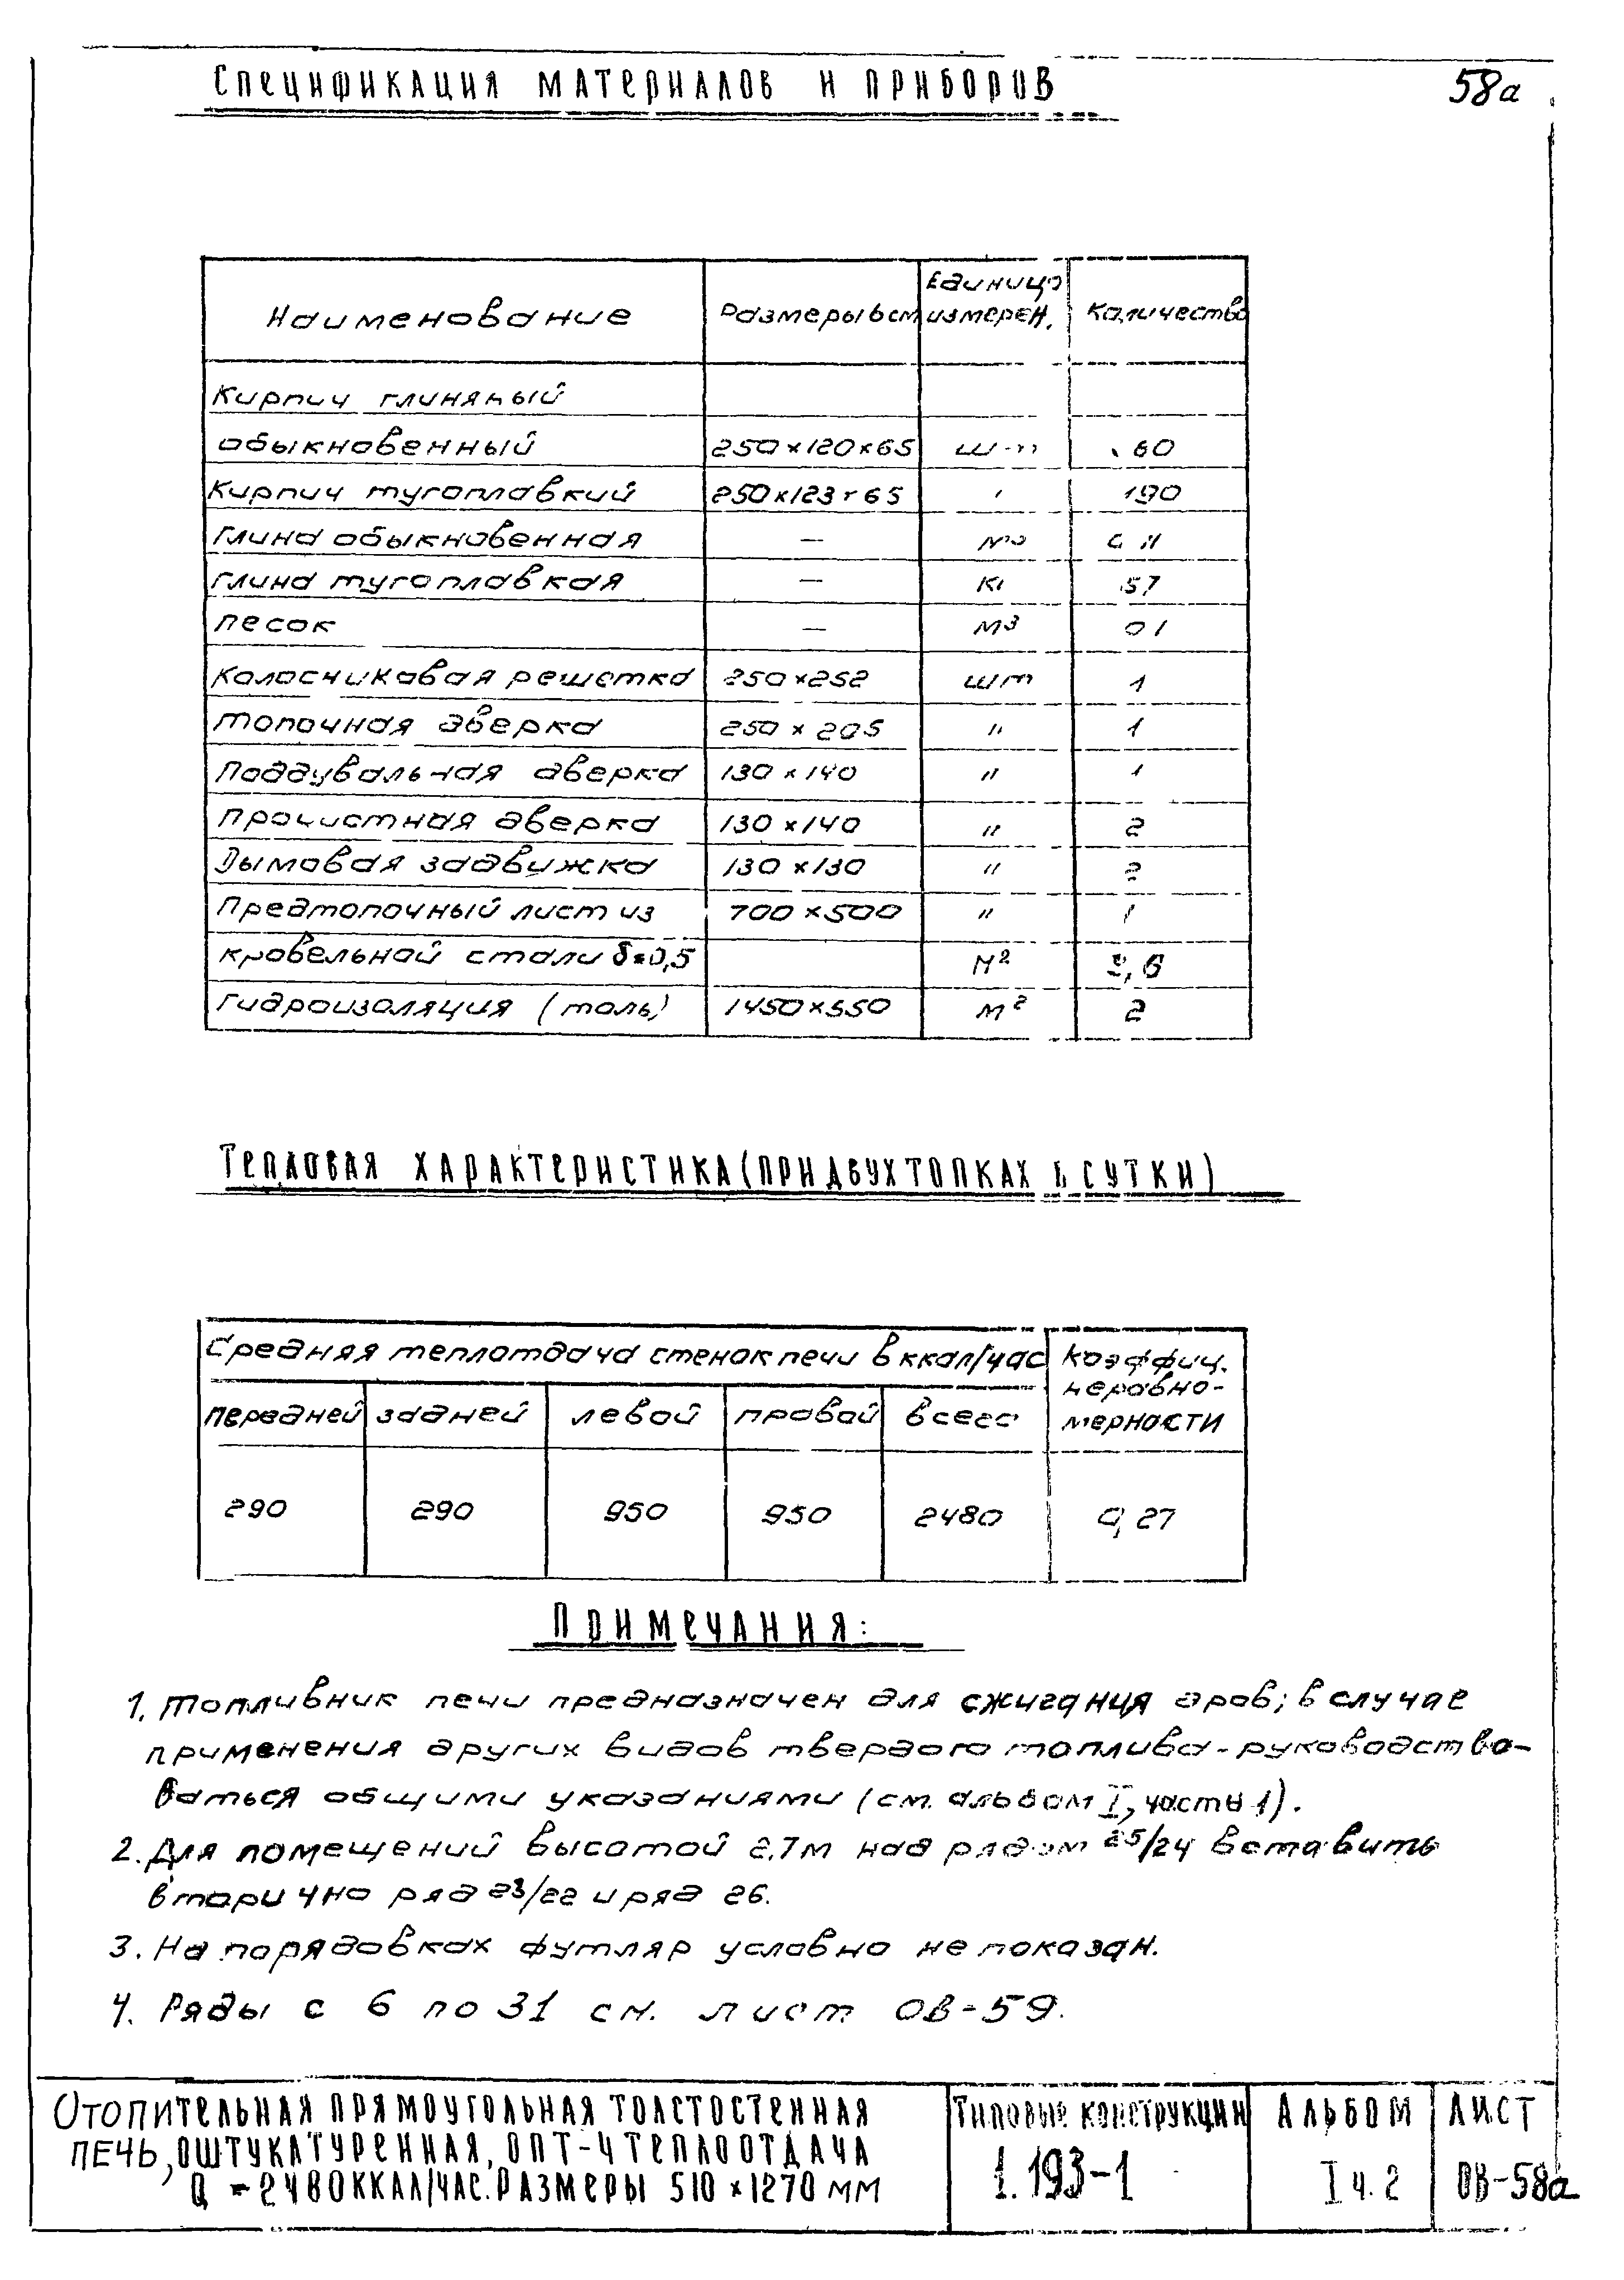 Спецификация материалов и приборов
58а
Наименование | Размеры в см | Единица измерен. | Количество
Кирпич глиняный
обыкновенный | 250×120×65 | шт | 60
Кирпич тугоплавкий | 250×123×65 | " | 190
Глина обыкновенная | — | м³
Глина тугоплавкая | — | кг | 57
Песок | — | м³ | 01
Колосниковая решетка | 250×252 | шт | 1
Топочная дверка | 250×205 | " | 1
Поддувальная дверка | 130×140 | " | 1
Прочистная дверка | 130×140 | " | 2
Дымовая задвижка | 130×130 | " | 2
Предтопочный лист из | 700×500 | " | 1
кровельной стали δ=0,5 | м²
Гидроизоляция (толь) | 1450×550 | м² | 2
Тепловая характеристика (при двух топках в сутки)
Средняя теплотдача стенок печи в ккал/час | Коэффиц. неравно-мерности
передней | задней | левой | правой | всего
290 | 290 | 950 | 950 | 2480 | 0,27
Примечания:
1. Топливник печи предназначен для сжигания дров; в случае
применения других видов твердого топлива - руководство-
ваться общими указаниями (см. альбом I, часть 1).
2. Для помещений высотой 2,7м над рядом 25/24 вставить
вторично ряд 23/22 и ряд 26.
3. На порядовках футляр условно не показан.
4. Ряды с 6 по 31 см. лист ОВ-59.
Отопительная прямоугольная толстостенная
печь, оштукатуренная, ОПТ-4 теплоотдача
Q = 2480 ккал/час. Размеры 510×1270 мм
Типовые конструкции
1.193-1
Альбом
I ч. 2
Лист
ОВ-58а